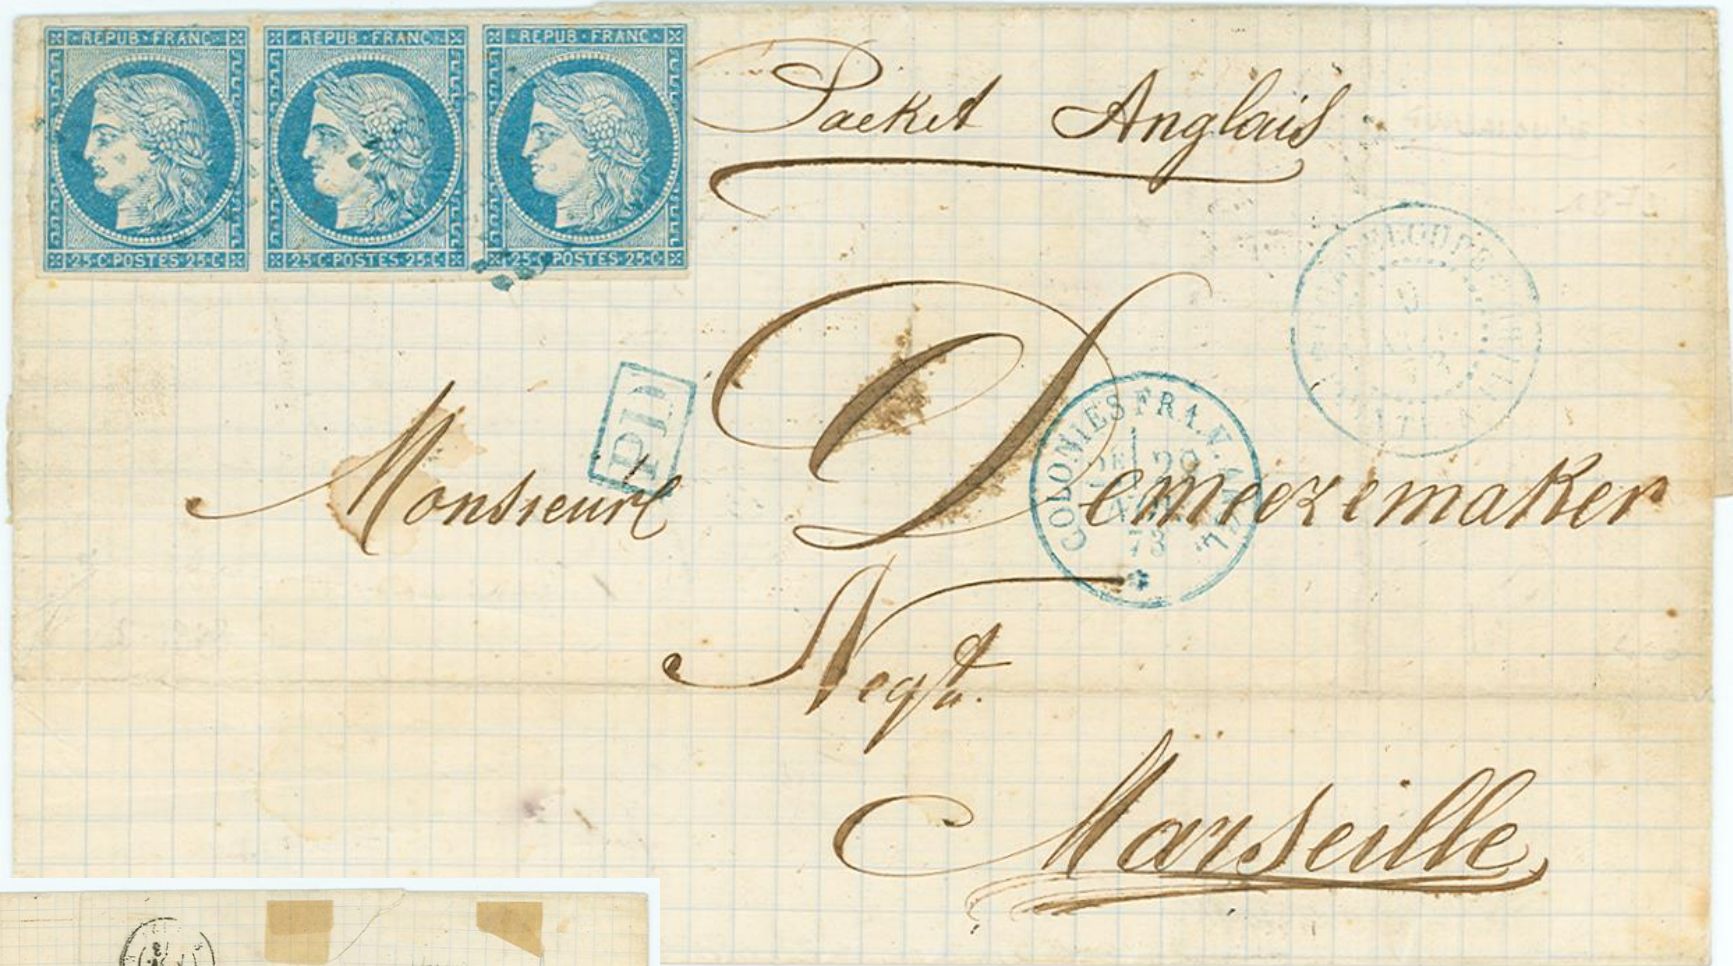 REPUB·FRANC· REPUB·FRANC· REPUB·FRANC·
25·C·POSTES·25·C· 25·C·POSTES·25·C· 25·C·POSTES·25·C·
Packet Anglais
PD
COLONIES FRA
29
73
Monsieur Demeezemaker
Negt.
Marseille